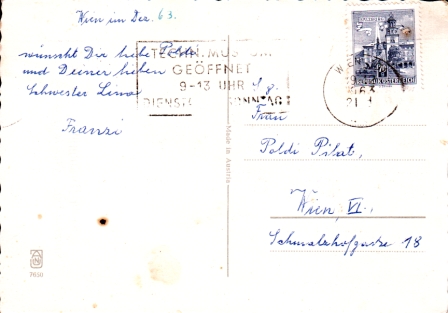 Wien im Dez. 63.
wünscht Dir liebe Poldi
und Deiner lieben
Schwester Lina
Franzi
TECHN. MUSEUM
GEÖFFNET
9-13 UHR
DIENST SONNTAG
REPUBLIK ÖSTERREICH
Made in Austria
S. g.
Frau
Poldi Pilat,
Wien, VI.,
Schmalzhofgasse 18